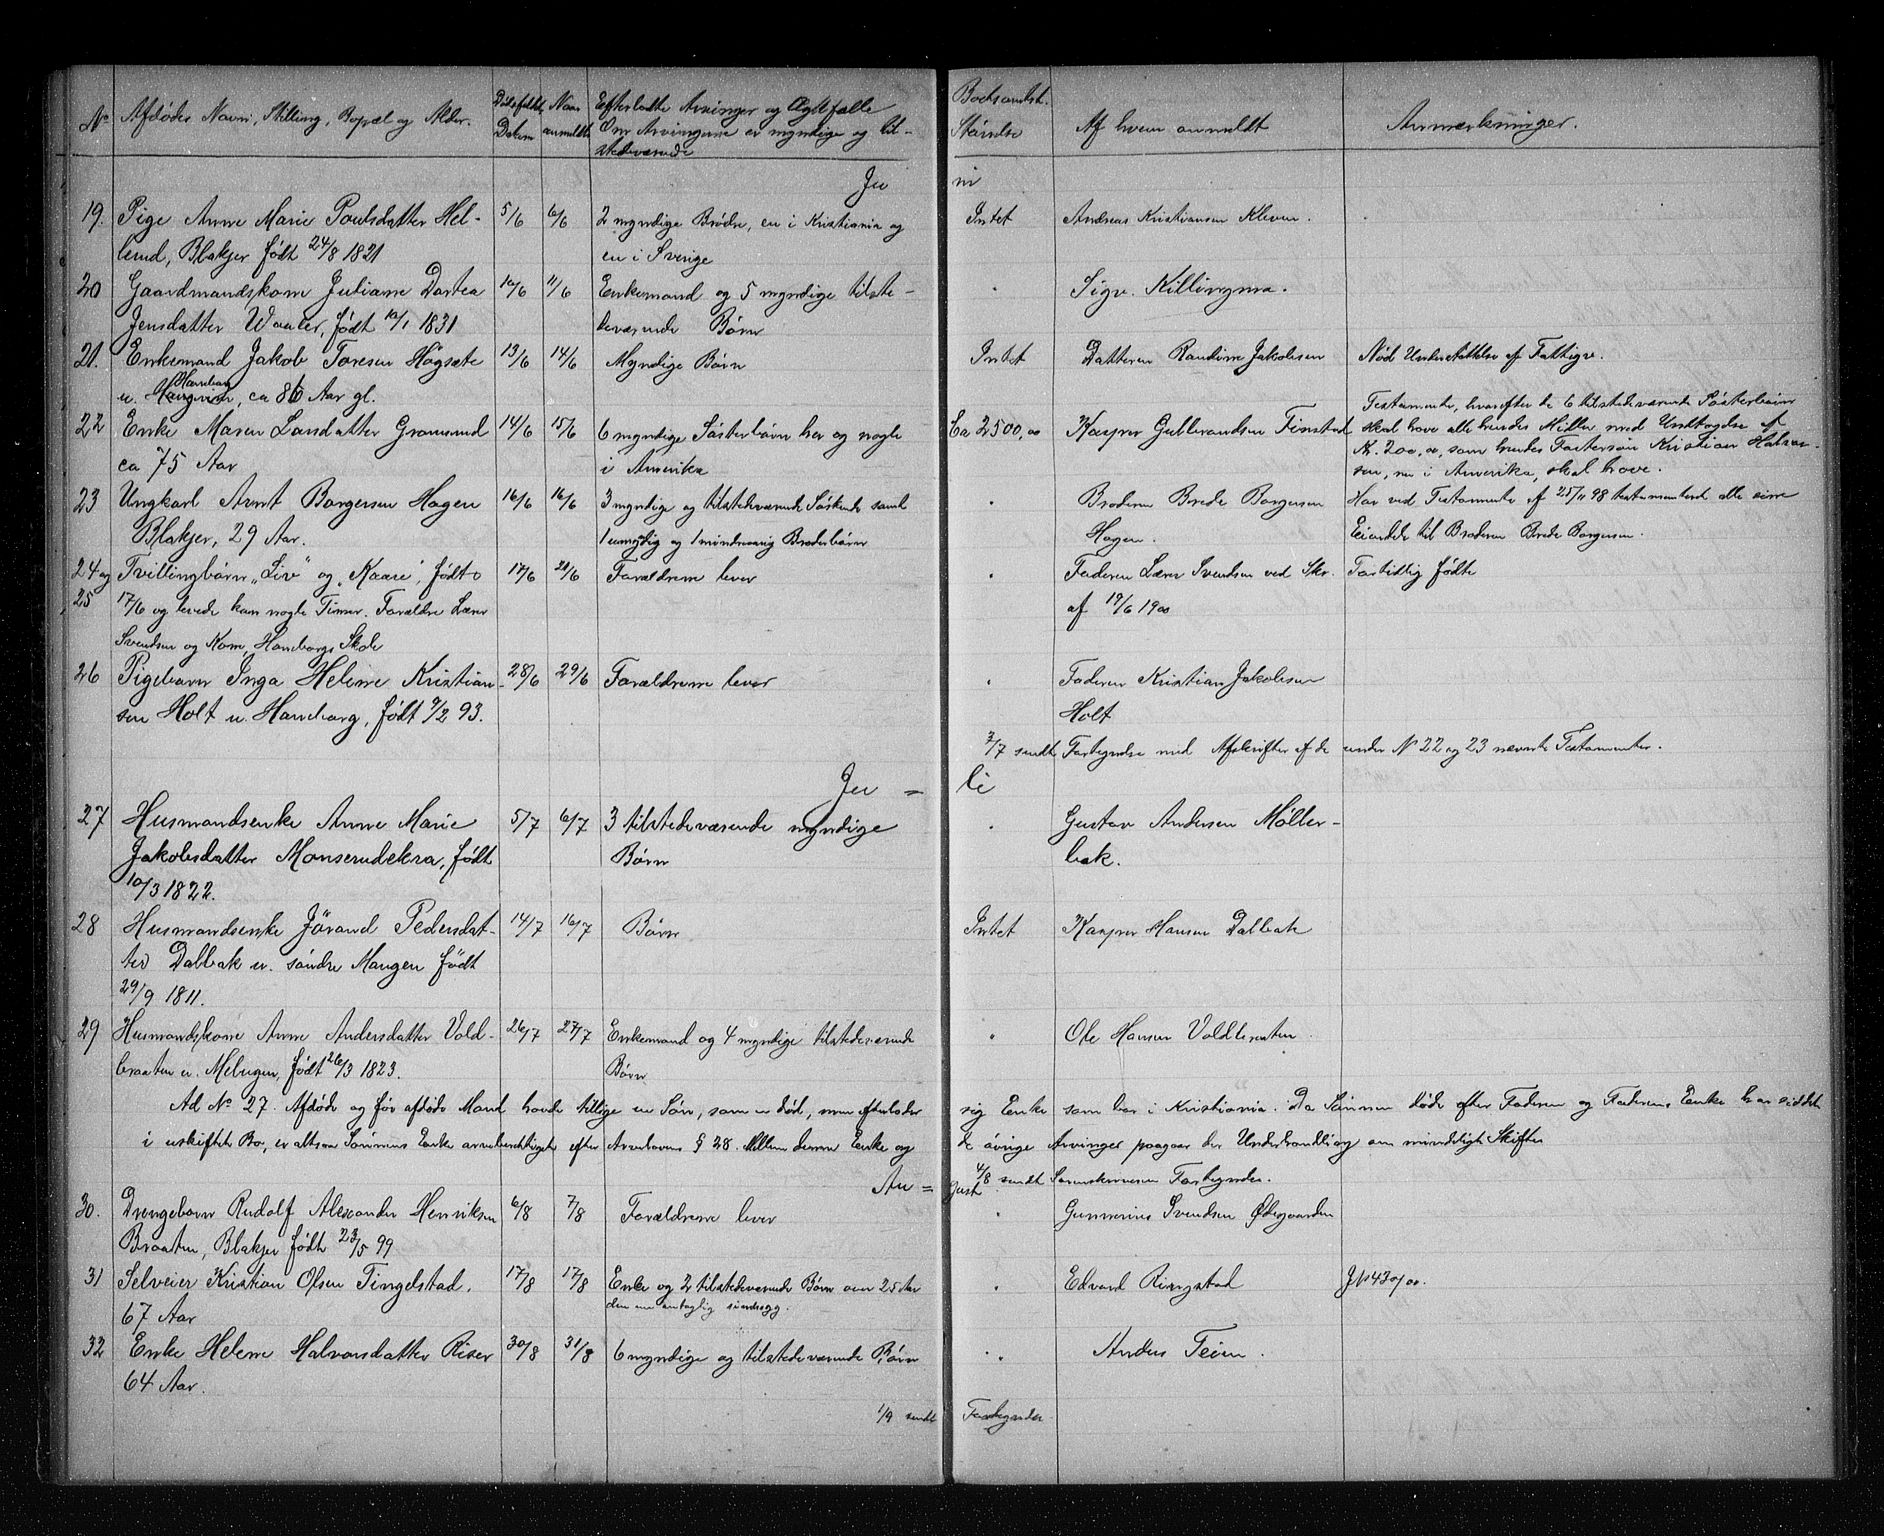 No. Afdødes Navn, Stilling, Bopæl og Alder. Dødsfaldets Datum Naar anmeldt Efterladte Arvinger og Ægtefælle Om Arvingerne er myndige og tilstedeværende Boets Størrelse Af hvem anmeldt Anmærkninger.
Ju ni
19. Pige Anne Marie Poulsdatter Hel- 5/6 6/6 2 myndige Brødre, en i Kristiania og Intet Andreas Kristiansen Kleven.
lerud, Blakjer født 24/8 1821 en i Sverige
20 Gaardmandskone Juliane Dortea 10/6 11/6 Enkemand og 5 myndige tilste- " Sigv. Killingmo.
Jensdatter Waaler, født 12/1 1831 deværende Børn
21. Enkemand Jakob Toresen Høgsæte 13/6 14/6 Myndige Børn Intet Datteren Randine Jakobsen Nød Understøttelse af Fattigv.
u. Haneborg, ca 86 Aar gl.
22 Enke Maren Larsdatter Gransrud 14/6 15/6 6 myndige Søsterbørn her og nogle Ca 2500,00 Kasper Gulbrandsen Finstad Testamente, hvorefter de 6 tilstedeværende Søsterbørn
ca 75 Aar i Amerika skal have alle hendes Midler med Undtagelse af
Kr. 200,00, som hendes Fostersøn Kristian Halvor-
sen, nu i Amerika, skal have.
23 Ungkarl Arnt Borgersen Hagen 16/6 16/6 3 myndige og tilstedeværende Søskende samt " Broderen Brede Borgersen Har ved Testamente af 25/11 98 testamenteret alle sine
Blakjer, 29 Aar. 1 umyndig og 1 mindreaarig Broderbørn Hagen. Eiendele til Broderen Brede Borgersen.
24 og Tvillingbørn "Liv" og "Kaare", født 17/6 20/6 Forældrene lever " Faderen Lærer Svendsen ved Skr. Fortidlig fødte
25 17/6 og levede kun nogle Timer. Forældre Lærer af 19/6 1900
Svendsen og Kone, Haneborgs Skole
26 Pigebarn Inga Helene Kristian- 28/6 29/6 Forældrene lever " Faderen Kristian Jakobsen
sen Holt u. Haneborg, født 9/2 93. Holt
3/7 sendt Fortegnelse med Afskrifter af de under No 22 og 23 nævnte Testamenter.
Ju = li
27 Husmandsenke Anne Marie 5/7 6/7 3 tilstedeværende myndige " Gustav Andersen Møller-
Jakobsdatter Monserudekra, født Børn bæk.
10/3 1822.
28 Husmandsenke Jørand Pedersdat- 14/7 16/7 Børn Intet Kasper Hansen Dalbak
ter Dalbak u. søndre Mangen født
29/9 1811.
29 Husmandskone Anne Andersdatter Vold- 26/7 27/7 Enkemand og 4 myndige tilstedeværende " Ole Hansen Voldbraaten
braaten u. Melnigen, født 26/3 1823. Børn
Ad No 27. Afdøde og før afdøde Mand havde tillige en Søn, som er død, men efterlader sig Enke som bor i Kristiania. Da Sønnen døde efter Faderen og Faderens Enke har siddet
i uskiftet Bo, er altsaa Sønnens Enke arveberettiget efter Arvelovens § 28. Mellem denne Enke og de øvrige Arvinger paagaar der Underhandling om mindeligt Skifte
4/8 sendt Sorenskriveren Fortegnelse.
Au = gust
30. Drengebarn Rudolf Alexander Henriksen 6/8 7/8 Forældrene lever " Gunnerius Svendsen Ødegaarden
Braaten, Blakjer født 23/5 99
31 Selveier Kristian Olsen Tingelstad. 17/8 17/8 Enke og 2 tilstedeværende Børn over 25 Aar " Edvard Ringstad
67 Aar den ene antaglig sindssyg.
32 Enke Helene Halvorsdatter Riser 30/8 31/8 6 myndige og tilstedeværende Børn " Anders Teien.
64 Aar.
1/9 sendt Fortegnelse.